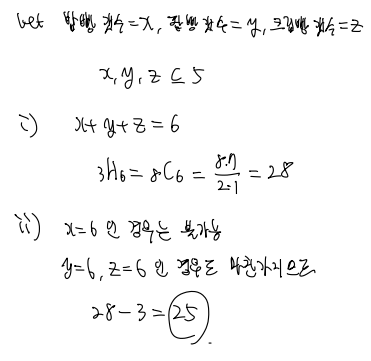 let 밤빵 개수=x, 팥빵 개수=y, 크림빵 개수=z
x, y, z ≤ 5
i) x+y+z=6
₃H₆ = ₈C₆ = 8·7/2·1 = 28
ii) x=6 인 경우는 불가능
y=6, z=6 인 경우도 마찬가지이므로
28-3=25.